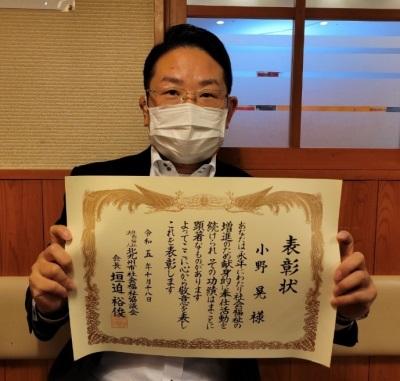 表彰状
小野晃様
あなたは永年にわたり社会福祉の
増進のため献身的な奉仕活動を
続けられ その功績はまことに
顕著なものがあります
よってここに心から敬意を表し
これを表彰します
令和五年十月十八日
社会福祉法人 北九州市社会福祉協議会
会長 垣迫裕俊